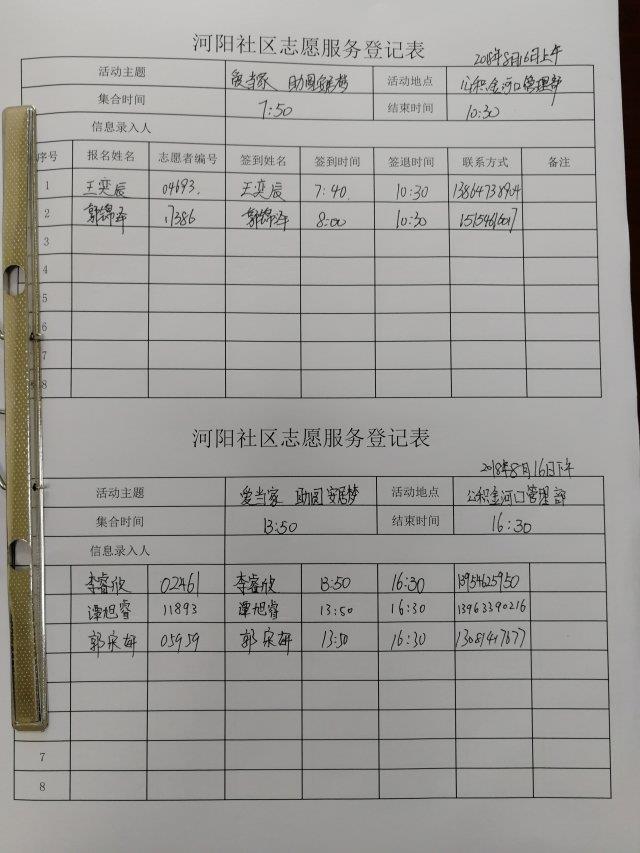 河阳社区志愿服务登记表
2018年8月16日上午
活动主题 爱当家 助圆安居梦 活动地点 公积金河口管理部
集合时间 7:50 结束时间 10:30
信息录入人
序号 报名姓名 志愿者编号 签到姓名 签到时间 签退时间 联系方式 备注
1 王奕辰 04693. 王奕辰 7:40. 10:30 13864738904
2 郭锦泽 17386 郭锦泽 8:00 10:30
3
4
5
6
7
8
河阳社区志愿服务登记表
2018年8月16日下午
活动主题 爱当家 助圆安居梦 活动地点 公积金河口管理部
集合时间 13:50 结束时间 16:30
信息录入人
李睿欣 02461 李睿欣 13:50 16:30 13954625950
谭旭睿 11893 谭旭睿 13:50 16:30 13963390216
郭 05959 郭 13:50 16:30
7
8